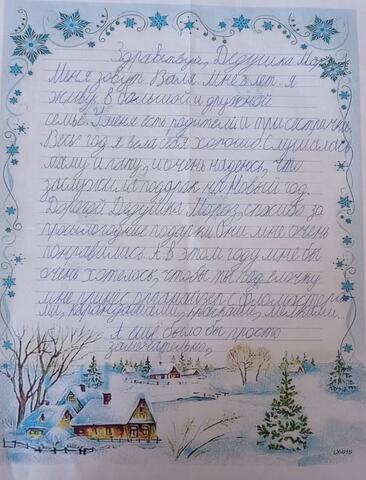 Здравствуй, Дедушка Мороз
Меня зовут Валя. Мне 8 лет. Я
живу в большой и дружной
семье. У меня есть родители и три сестрички.
Весь год я вела себя хорошо. Слушалась
маму и папу, и очень надеюсь, что
заслужила подарок на Новый год.
Дорогой Дедушка Мороз, спасибо за
прошлогодние подарки они мне очень
понравились. А в этом году мне бы
очень хотелось, чтобы ты под ёлочку
мне принес органайзер с фломастера
ми, карандашами, красками, мелками...
А ещё было бы просто
замечательно,
LX-015